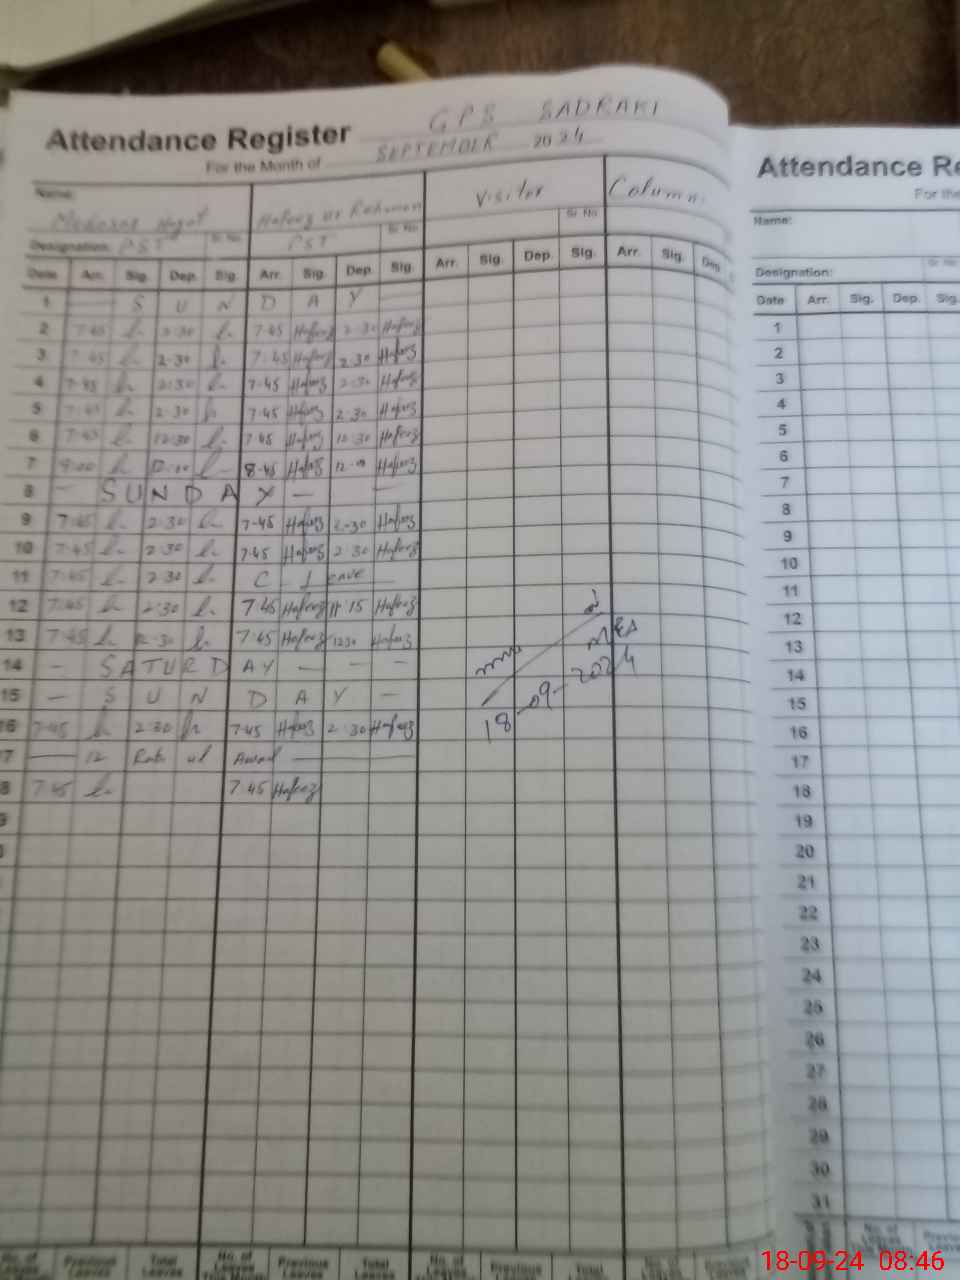 GPS SADRAKI
Attendance Register
For the Month of SEPTEMBER 2024
Name: Hafeez ur Rehman Visitor Column
Sr. No Sr. No Sr. No
Designation: PST PST
Date Arr. Sig. Dep. Sig. Arr. Sig. Dep. Sig. Arr. Sig. Dep. Sig. Arr. Sig. Dep.
1 — S U N D A Y —
2 7.45 2.30 7.45 Hafeez 2.30 Hafeez
3 7.45 2.30 7.45 Hafeez 2.30 Hafeez
4 7.45 2.30 7.45 Hafeez 2.30 Hafeez
5 7.45 2.30 7.45 Hafeez 2.30 Hafeez
6 7.45 12.30 7.45 Hafeez 12.30 Hafeez
7 9.00 12.00 8.45 Hafeez 12.00 Hafeez
8 — S U N D A Y — —
9 7.45 2.30 7.45 Hafeez 2.30 Hafeez
10 7.45 2.30 7.45 Hafeez 2.30 Hafeez
11 7.45 2.30 C. Leave —
12 7.45 2.30 7.45 Hafeez 11.15 Hafeez
13 7.45 12.30 7.45 Hafeez 1230 Hafeez
14 — S A T U R D A Y — — —
15 — S U N D A Y —
16 7.45 2.30 7.45 Hafeez 2.30 Hafeez
MEA
18-09-2024
17 — 12 Rabi ul Awal —
18 7.45 7.45 Hafeez
No. of Leaves This Month Previous Leaves Total Leaves No. of Leaves Previous Leaves Total Leaves
Attendance Re
For the
Name:
Sr. No
Designation:
Date Arr. Sig. Dep. Sig.
1
2
3
4
5
6
7
8
9
10
11
12
13
14
15
16
17
18
19
20
21
22
23
24
25
26
27
28
29
30
31
No. of Leaves Previous Leaves
18-09-24 08:46